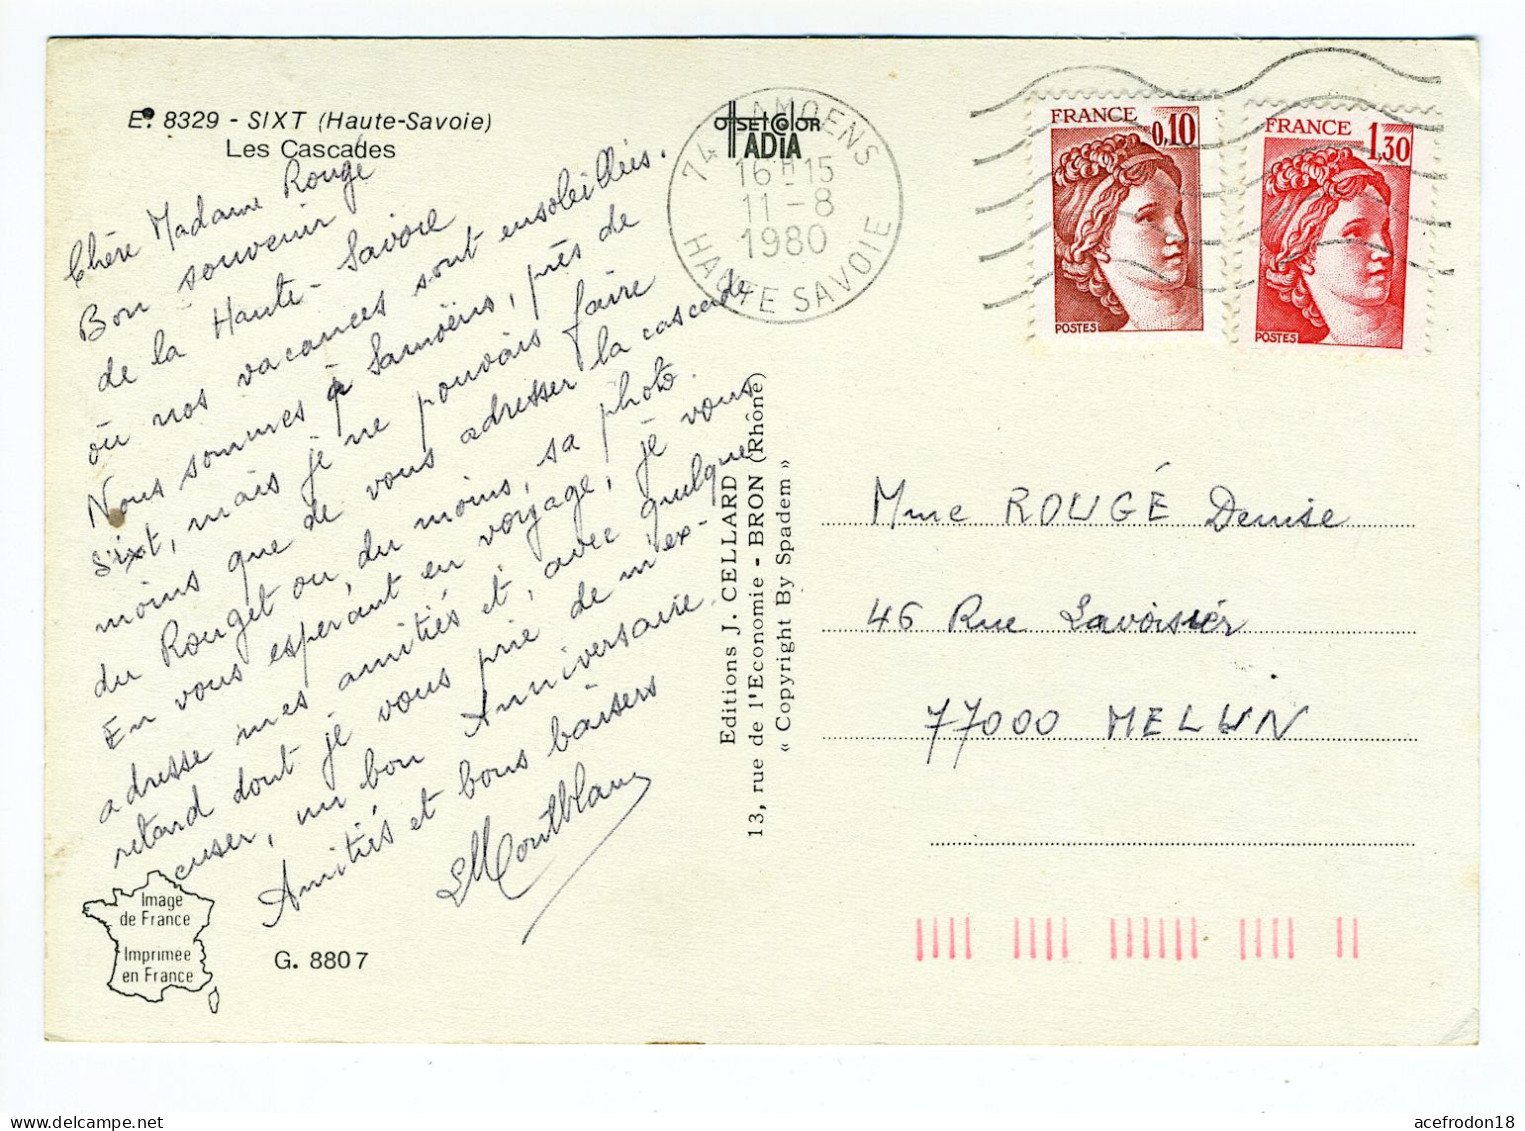 E. 8329 - SIXT (Haute-Savoie)
Les Cascades
Chère Madame Rougé
Bon souvenir
de la Haute-Savoie
où nos vacances sont ensoleillées.
Nous sommes à Samoëns, près de
Sixt, mais je ne pouvais faire
moins que de vous adresser la cascade
du Rouget ou, du moins, sa photo.
En vous espérant en voyage, je vous
adresse mes amitiés et, avec quelque
retard dont je vous prie de m'ex-
cuser, un bon Anniversaire.
Amitiés et bons baisers
Image
de France
Imprimée
en France
G. 8807
OFFSET COLOR
ADIA
74 SAMOENS
16H-15
11-8
1980
HAUTE SAVOIE
Editions J. CELLARD
13, rue de l'Economie - BRON (Rhône)
« Copyright By Spadem »
FRANCE
0,10
POSTES
FRANCE
1,30
POSTES
Mme ROUGÉ Denise
46 Rue Lavoisier
77000 MELUN
acefrodon18